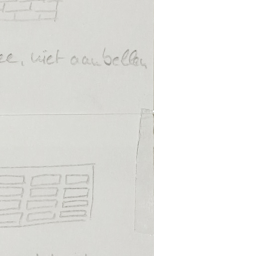 ee, niet aanbellen